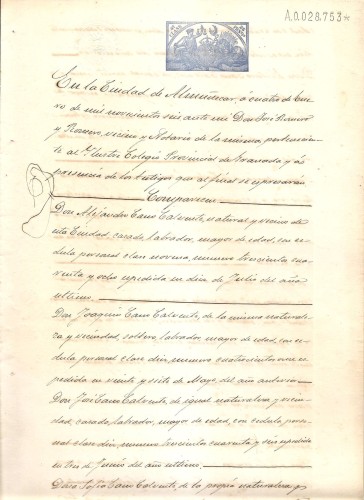 A.0.028.753*
En la Ciudad de Almuñecar, á cuatro de Ene-
ro de mil novecientos seis ante mi Don José Romero
y Romero, vecino y Notario de la misma, pertenecien-
te al Ilustre Colegio Provincial de Granada, y á
presencia de los testigos que al final se expresarán
Comparecen
Don Alejandro Cano Calvente, natural y vecino de
esta Ciudad, casado, labrador, mayor de edad, con ce-
dula personal clase novena, numero trescientos cua-
renta y ocho expedida en diez de Julio del año
ultimo.
Don Joaquin Cano Calvente, de la misma naturale-
za y vecindad, soltero, labrador, mayor de edad, con ce-
dula personal clase diez, numero cuatrocientos once ex-
pedida en veinte y siete de Mayo del año anterior.
Don José Cano Calvente, de igual naturaleza y vecin-
dad, casado, labrador, mayor de edad, con cedula perso-
nal clase diez, numero trescientos cuarenta y seis expedida
en tres de Junio del año ultimo.
Cano Calvente de la propia naturaleza y